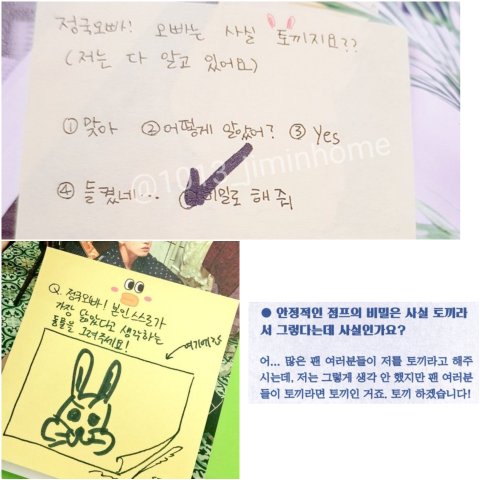 정국오빠! 오빠는 사실 토끼지요??
(저는 다 알고 있어요)
① 맞아 ② 어떻게 알았어? ③ Yes
④ 들켰네... 비밀로 해줘
@1013_jiminhome
Q. 정국오빠! 본인 스스로가
가장 닮았다고 생각하는
동물을 그려주세요!
여기에다
● 안정적인 점프의 비밀은 사실 토끼라
서 그렇다는데 사실인가요?
어... 많은 팬 여러분들이 저를 토끼라고 해주
시는데, 저는 그렇게 생각 안 했지만 팬 여러분
들이 토끼라면 토끼인 거죠. 토끼 하겠습니다!